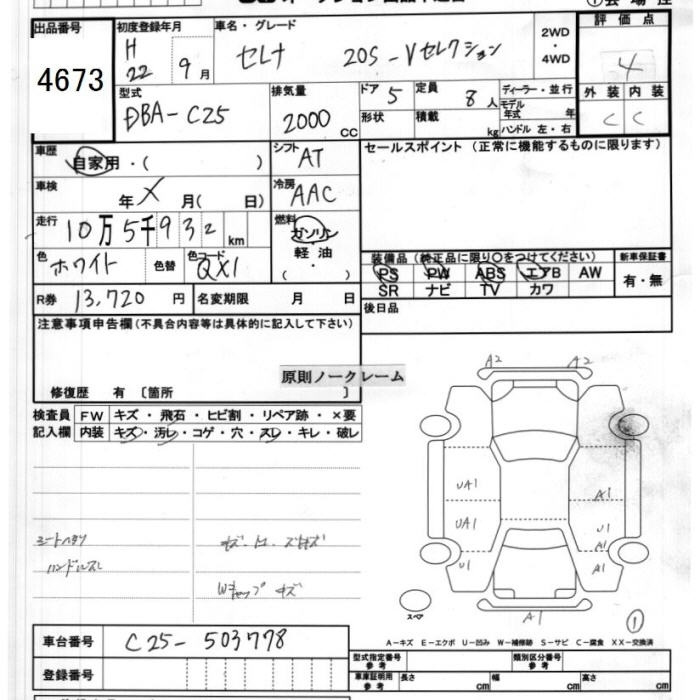 出品番号
4673
初度登録年月
H 22 9月
車名・グレード
セレナ 20S-Vセレクション
2WD
・
4WD
評価点
4
外装 内装
C C
型式
DBA-C25
排気量
2000 CC
ドア 5
定員 8人
形状
積載 kg
ディーラー・並行
モデル
年式 年
ハンドル 左・右
車歴
自家用・( )
シフト
AT
セールスポイント (正常に機能するものに限ります)
車検
年 X 月( 日)
冷房
AAC
走行
10万5千932 km
燃料
ガソリン
軽油
( ・ )
色
ホワイト
色替
色コード
QX1
装備品 (純正品に限り○をつけてください)
新車保証書
PS PW ABS エアB AW
SR ナビ TV カワ
有・無
R券 13,720 円
名変期限 月 日
後日品
注意事項申告欄(不具合内容等は具体的に記入して下さい)
原則ノークレーム
修復歴 有 〔箇所 〕
検査員 FW キズ・飛石・ヒビ割・リペア跡・×要
記入欄 内装 キズ・汚レ・コゲ・穴・スレ・キレ・破レ
シートヘタリ
ハンドルスレ
Wキャップ キズ
A2 A2
UA1 A1
UA1 U1
A1
U1 A1
A1
スペア
1
A-キズ E-エクボ U-凹み W-補修跡 S-サビ C-腐食 XX-交換済
車台番号 C25-503778
登録番号
型式指定番号
参考
類別区分番号
参考
車庫証明用
参考
長さ cm 幅 cm 高さ cm